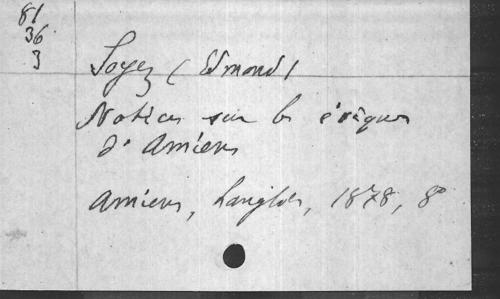 81
36
3
Soyez (Edmond)
Notices sur les évêques
d'Amiens
Amiens, Langlois, 1878, 8°